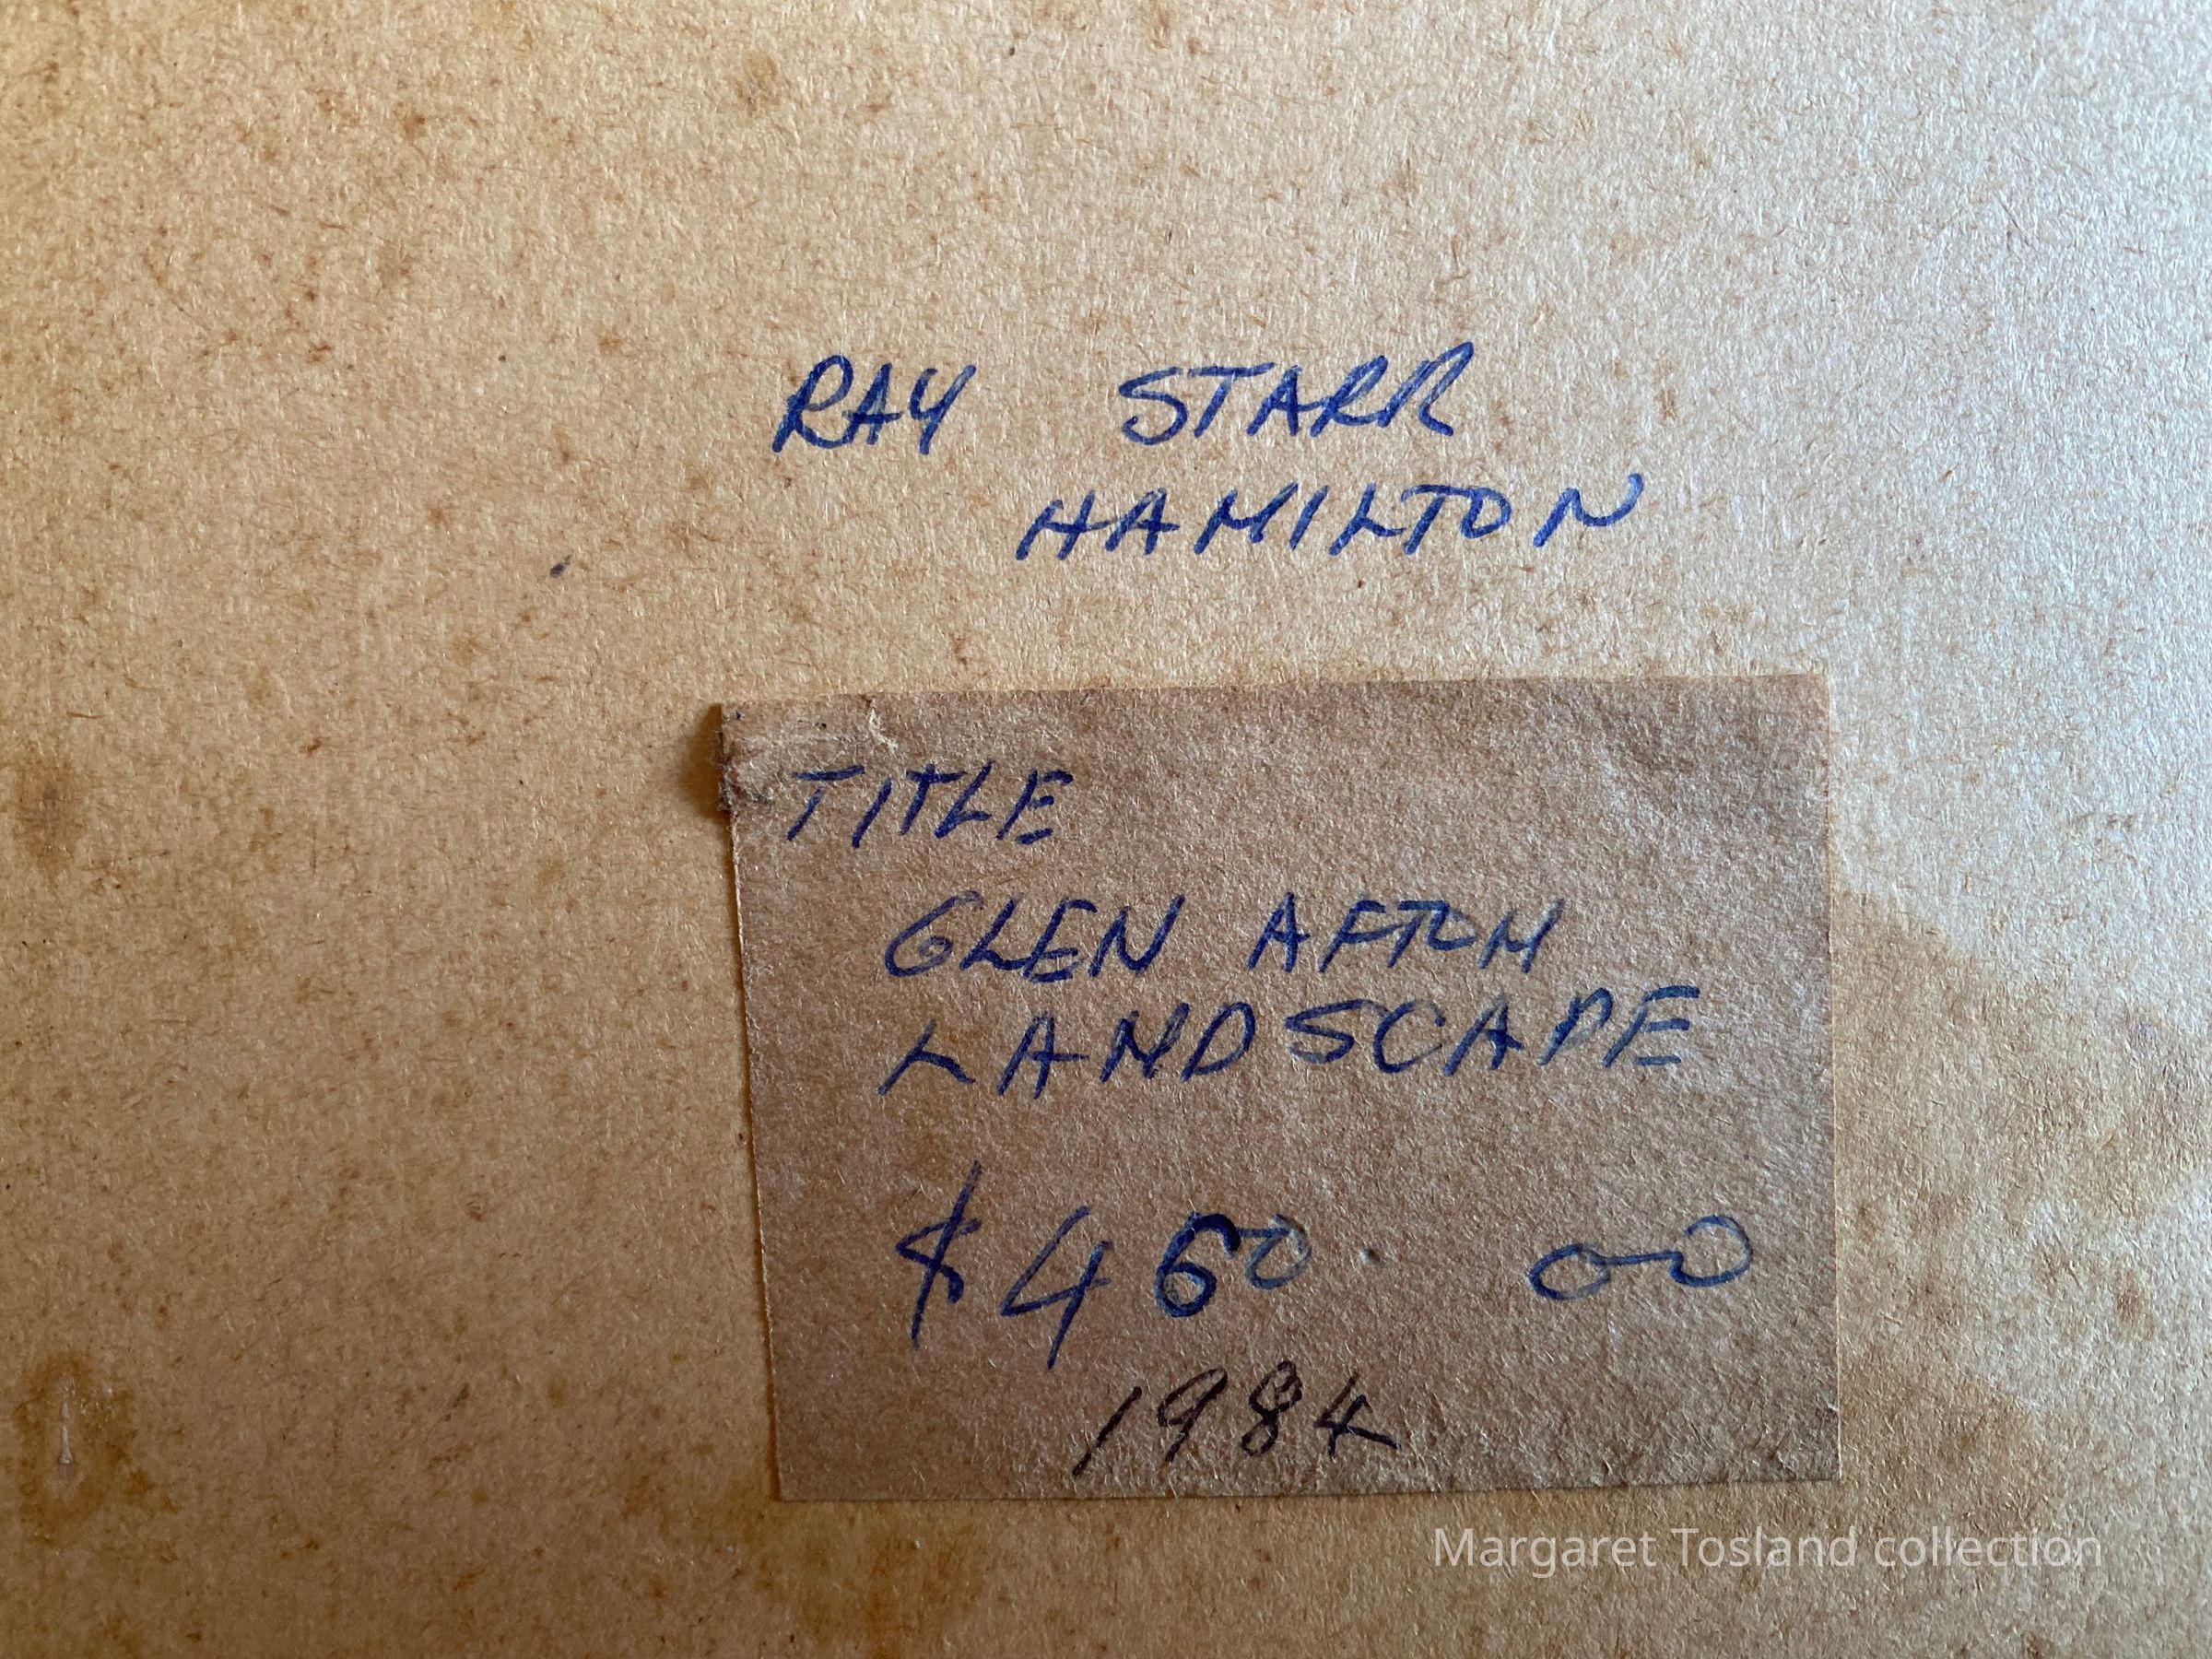 RAY STARR
HAMILTON
TITLE
GLEN AFTON
LANDSCAPE
$460.00
1984
Margaret Tosland collection